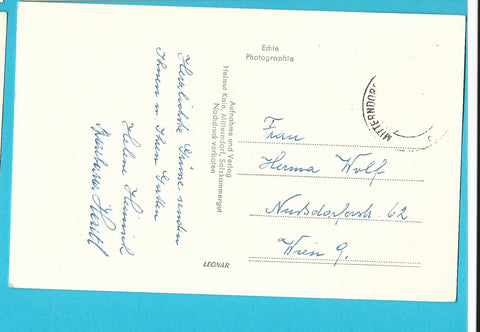 Echte
Photographie
Herzlichste Grüsse senden
Ihnen u. Ihrem Gatten
Helene Heinrich
Aufnahme und Verlag
Helmut Kain, Mitterndorf, Salzkammergut
Nachdruck verboten
MITTERNDORF
Frau
Herma Wolf
Nußdorferstr. 62
Wien 9.
LEONAR